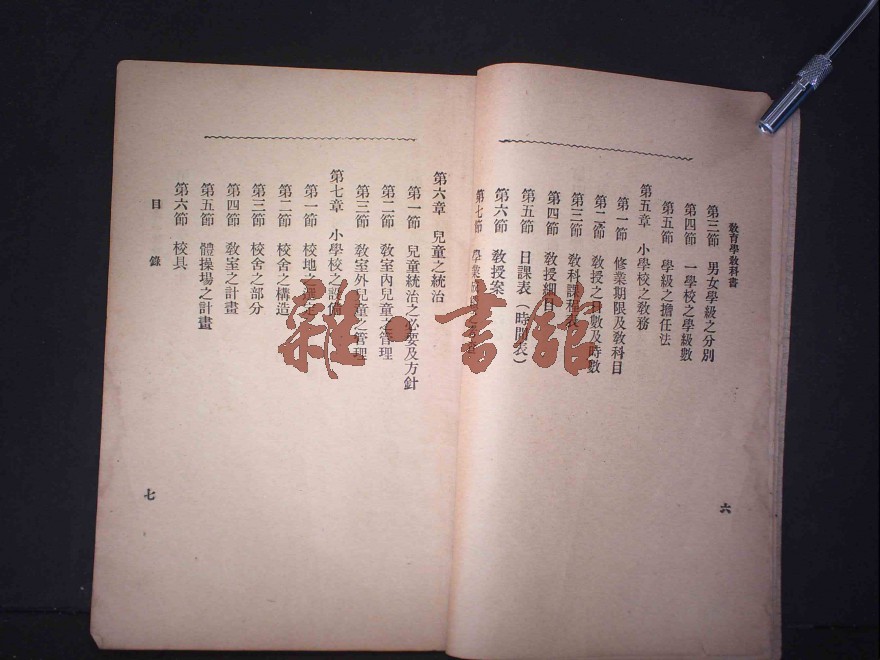 教育學教科書
第三節 男女學級之分別
第四節 一學校之學級數
第五節 學級之擔任法
第五章 小學校之教務
第一節 修業期限及教科目
第二節 教授之日數及時數
第三節 教科課程表
第四節 教授細目
第五節 日課表（時間表）
第六節 教授案
第七節 學業成
六
第六章 兒童之統治
第一節 兒童統治之必要及方針
第二節 教室內兒童之管理
第三節 教室外兒童之管理
第七章 小學校之設備
第一節 校地之選定
第二節 校舍之構造
第三節 校舍之部分
第四節 教室之計畫
第五節 體操場之計畫
第六節 校具
目錄
七
雜·書館